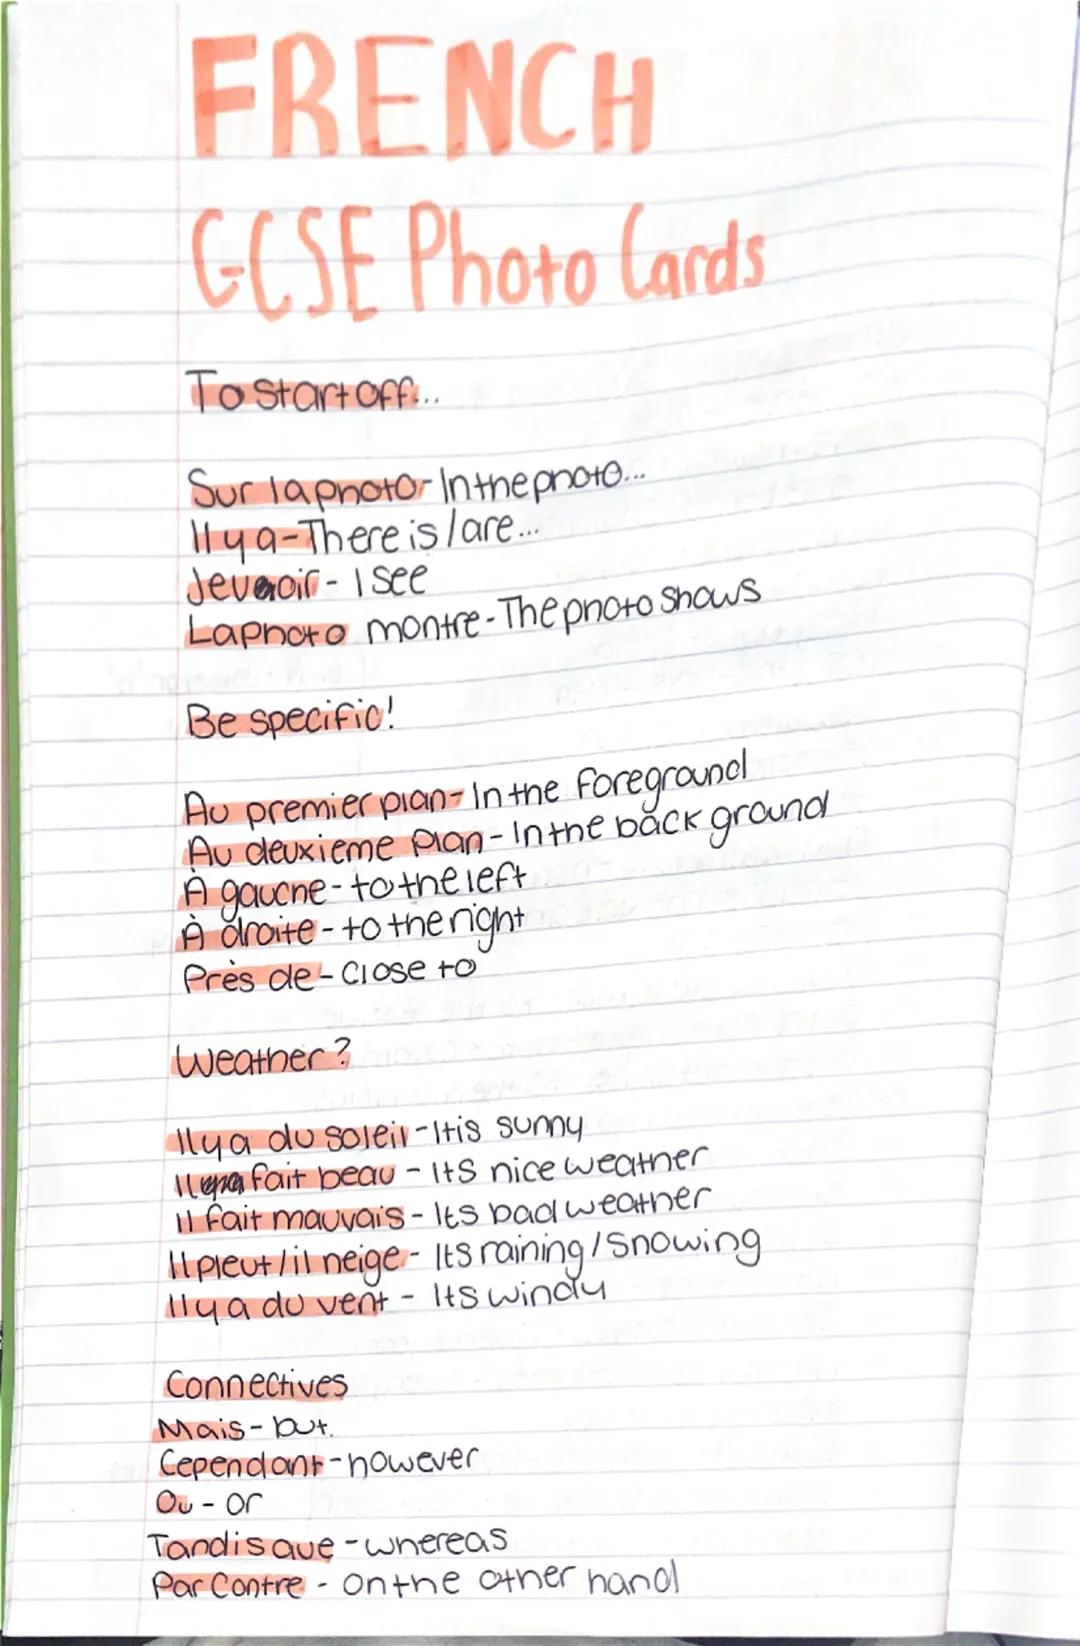 FRENCH
GCSE Photo Cards
To start off...
Sur la photo - In the photo...
Il y a - There is / are...
Je voir - I see
La photo montre - The photo shows
Be specific!
Au premier plan - In the foreground
Au deuxieme plan - In the back ground
À gauche - to the left
À droite - to the right
Près de - Close to
Weather?
Il y a du soleil - It is sunny
Il fait beau - Its nice weather
il fait mauvais - Its bad weather
Il pleut / il neige - Its raining / Snowing
Il y a du vent - Its windy
Connectives
Mais - but.
Cependant - however
Ou - or
Tandis que - whereas
Par Contre - on the other hand